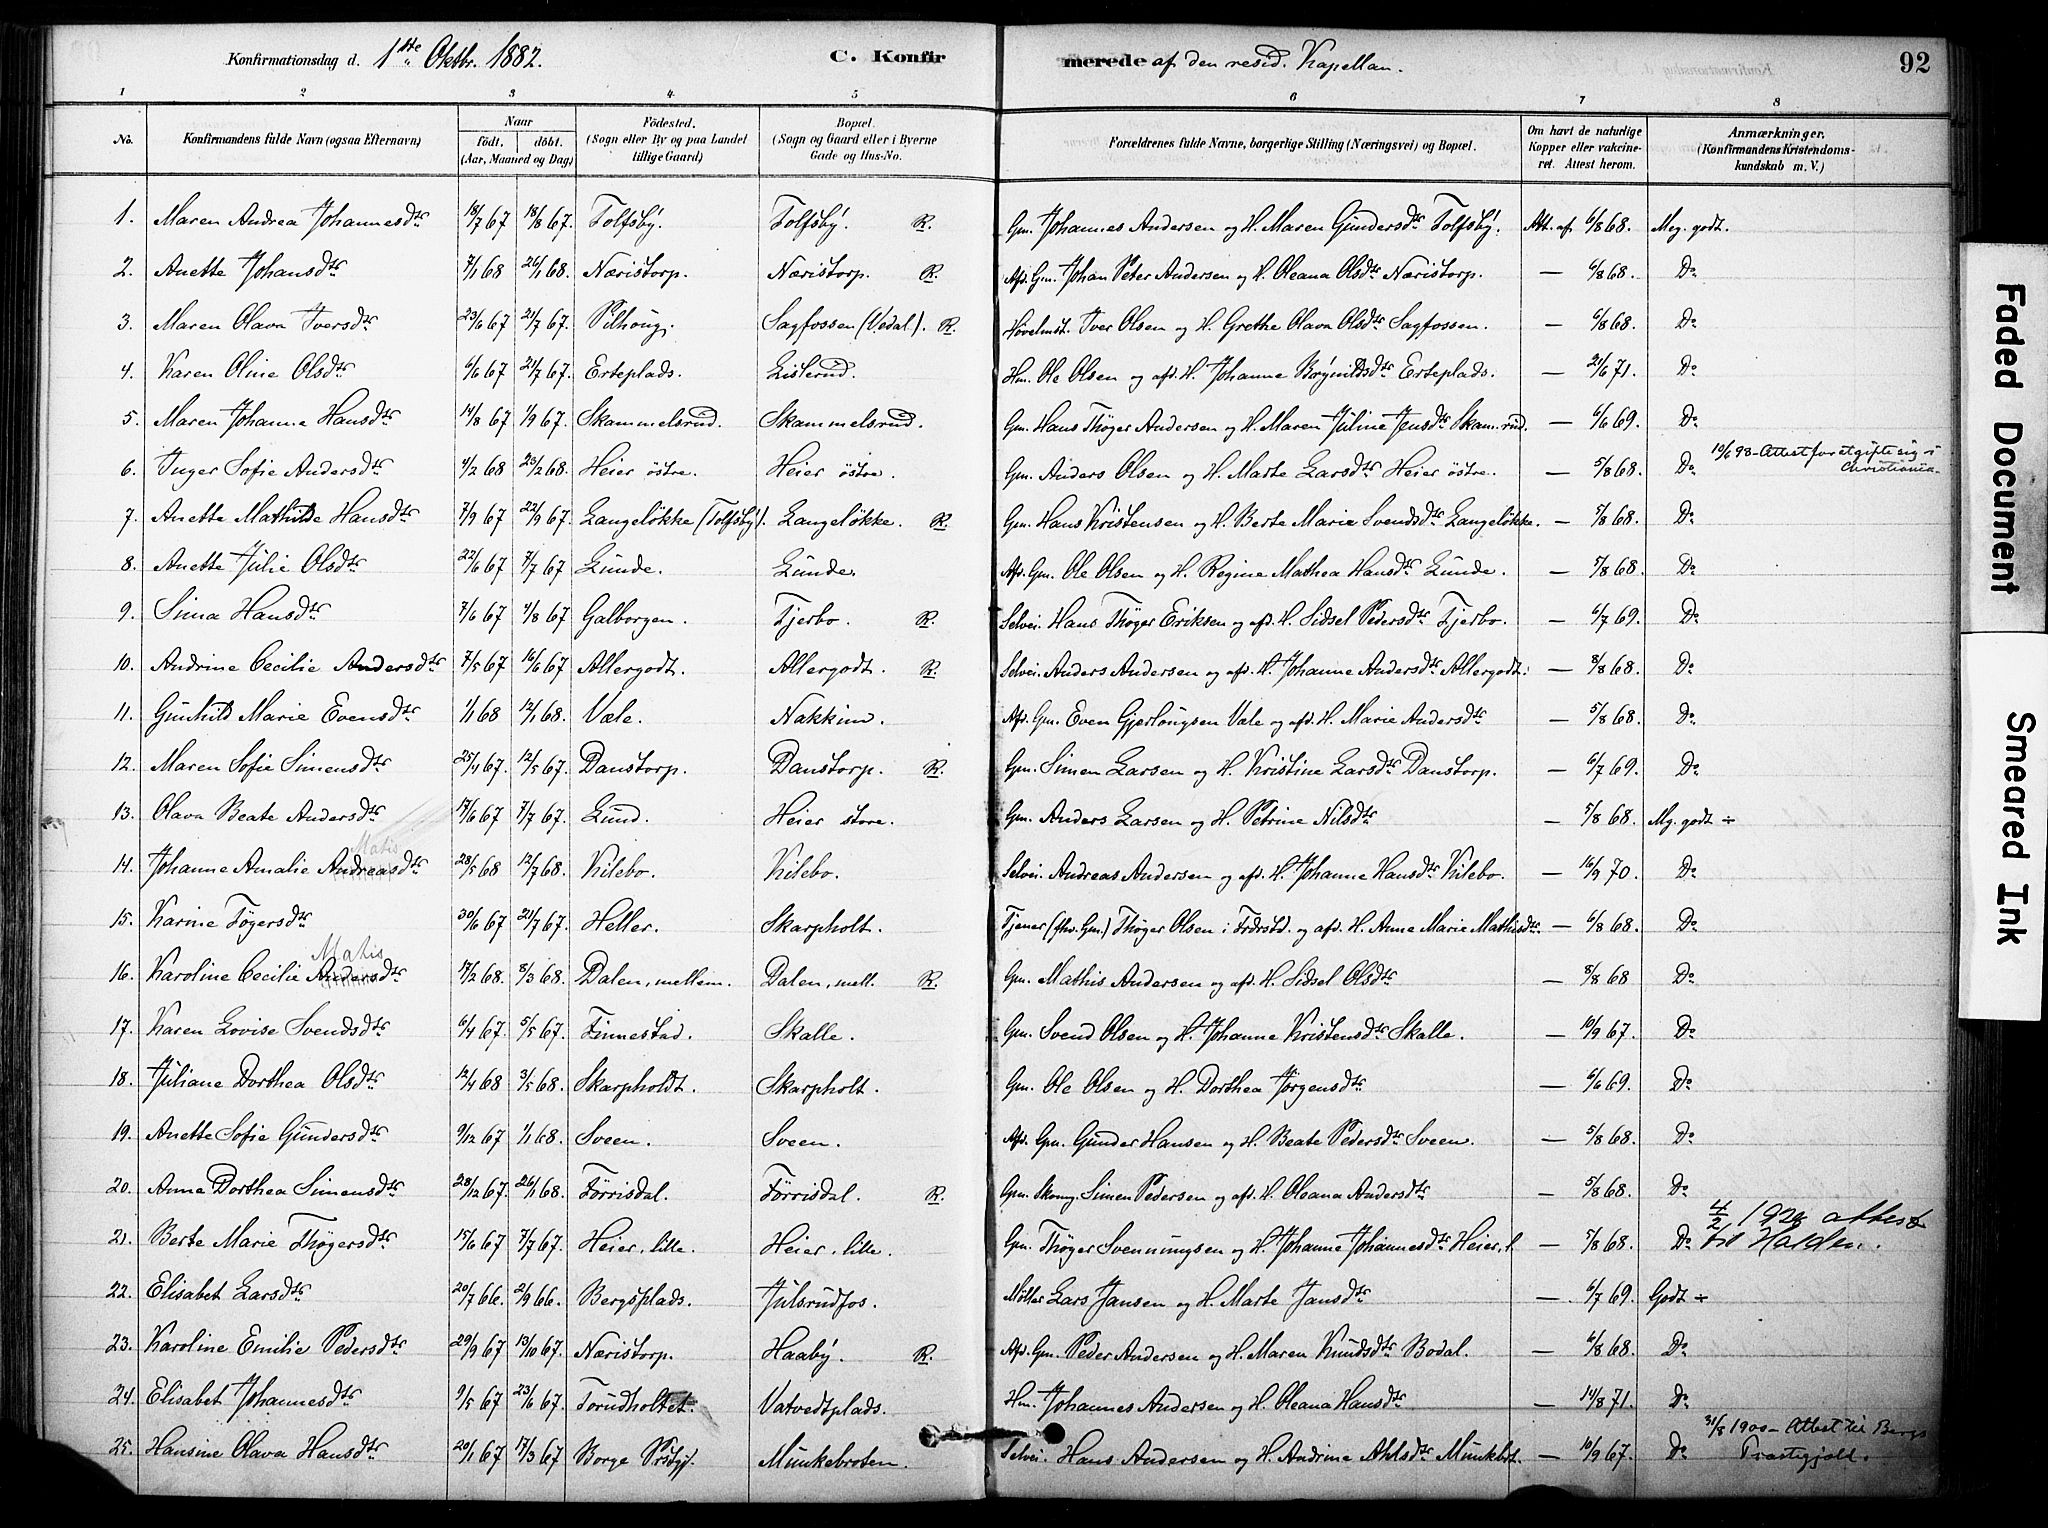 Konfirmationsdag d. 1ste Oktbr. 1882. C. Konfir merede af den resid. Kapellan. 92
1 2 3 4 5 6 7 8
No. Konfirmandens fulde Navn (ogsaa Efternavn) Naar födt. döbt. (Aar, Maaned og Dag) Födested. (Sogn eller By og paa Landet tillige Gaard) Bopæl. (Sogn og Gaard eller i Byerne Gade og Hus-No. Forældrenes fulde Navne, borgerlige Stilling (Næringsvei) og Bopæl. Om havt de naturlige Kopper eller vakcineret. Attest herom. Anmærkninger. (Konfirmandens Kristendomskundskab m. V.)
1. Maren Andrea Johannesdtr 18/7 67 18/8 67. Tolfsby. Tolfsby. R. Gm. Johannes Andersen og H. Maren Gundersdtr Tolfsby. Att. af 6/8 68. Meg. godt.
2. Anette Johansdtr 7/1 68 26/1 68. Næristorp. Næristorp. R. Afd. Gm. Johan Peter Andersen og H. Oleana Olsdtr Næristorp. — 6/8 68. Do
3. Maren Olava Iversdtr 23/6 67 21/7 67. Pilhoug. Sagfossen (Vedal). R. Høvelmst. Iver Olsen og H. Grethe Olava Olsdtr Sagfossen. — 6/8 68. Do
4. Karen Oline Olsdtr 6/6 67 21/7 67. Erteplads. Lislerud. Hm. Ole Olsen og afd. H. Johanne Børynildsdtr Erteplads. — 21/6 71. Do
5. Maren Johanne Hansdtr 14/8 67 1/9 67. Skammelsrud. Skammelsrud. Gm. Hans Thøger Andersen og H. Maren Juline Jensdtr Skam.rud. — 6/6 69. Do
6. Inger Sofie Andersdtr 4/2 68 23/2 68. Heier østre. Heier østre. Gm. Anders Olsen og H. Marte Larsdtr Heier østre. — 5/8 68. Do 10/6 98 - Attest for at gifte sig i Christiania.
7. Anette Mathilde Hansdtr 7/9 67 22/9 67. Langeløkke (Tolfsby). Langeløkke. R. Gm. Hans Kristensen og H. Berte Marie Svendsdtr Langeløkke. — 5/8 68. Do
8. Anette Julie Olsdtr 22/6 67 7/7 67. Lunde. Lunde. Afd. Gm. Ole Olsen og H. Regine Mathea Hansdtr Lunde. — 5/8 68. Do
9. Sina Hansdtr 7/6 67 4/8 67. Galborgen. Tjerbo. R. Selvei. Hans Thøger Eriksen og afd. H. Sidsel Pedersdtr Tjerbo. — 6/7 69. Do
10. Andrine Cecilie Andersdtr 7/5 67 16/6 67. Allergodt. Allergodt. R. Selvei. Anders Andersen og afd. H. Johanne Andersdtr Allergodt. — 8/8 68. Do
11. Gunhild Marie Evensdtr 1/1 68 12/1 68. Vale. Nakkim. Afd. Gm. Even Gjerlougsen Vale og afd. H. Marie Andersdtr — 5/8 68. Do
12. Maren Sofie Simensdtr 25/4 67. 12/5 67. Danstorp. Danstorp. R. Gm. Simen Larsen og H. Kristine Larsdtr Danstorp. — 6/7 69. Do
13. Olava Beate Andersdtr 17/6 67 7/7 67. Lund. Heier store. Gm. Anders Larsen og H. Petrine Nilsdtr — 5/8 68. Mg. godt ÷
Matis
14. Johanne Amalie Andreasdtr 28/5 68 12/7 68. Kilebo. Kilebo. Selvei. Andreas Andersen og afd. H. Johanne Hansdtr Kilebo. — 16/9 70. Do
15. Karine Tøgersdtr 30/6 67 21/7 67. Heller. Skarpholt. Tjener (fhv. Gm.) Thøger Olsen i Frdrstd. og afd. H. Anne Marie Mathisdtr. — 6/8 68. Do
Matis
16. Karoline Cecilie Andersdtr 17/2 68. 8/3 68. Dalen, mellem. Dalen, mell. R. Gm. Mathis Andersen og afd. H. Sidsel Olsdtr — 8/8 68 Do
17. Karen Lovise Svendsdtr 6/4 67. 5/5 67. Finnestad. Skalle. Gm. Svend Olsen og H. Johanne Kristensdtr Skalle. — 10/9 67. Do
18. Juliane Dorthea Olsdtr 12/4 68 3/5 68. Skarpholdt. Skarpholt. Gm. Ole Olsen og H. Dorthea Jørgensdtr — 6/6 69. Do
19. Anette Sofie Gundersdtr 9/12 67 1/1 68. Sveen. Sveen. Afd. Gm. Gunder Hansen og H. Beate Pedersdtr Sveen. — 5/8 68. Do
20. Anne Dorthea Simensdtr 28/12 67. 26/1 68. Førrisdal. Førrisdal. R. Gm. Skomg. Simen Pedersen og afd. H. Oleana Andersdtr — 5/8 68. Do
21. Berte Marie Thøgersdtr 15/6 67 7/7 67. Heier, lille. Heier, lille. Gm. Thøger Svenningsen og H. Johanne Johannesdtr Heier, l — 5/8 68. Do 4/2 1928 attest til Halden.
22. Elisabet Larsdtr 20/7 66. 2/9 66. Bergsplads. Julsrudfos. Møller Lars Jansen og H. Marte Jansdtr — 6/7 69. Godt ÷
23. Karoline Emilie Pedersdtr 29/9 67 13/10 67. Næristorp. Haaby. R. Afd. Gm. Peder Andersen og H. Maren Knudsdtr Bodal. — 6/8 68. Do
24. Elisabet Johannesdtr 9/5 67 23/6 67. Torudholtet. Vatvedtplads. Hm. Johannes Andersen og H. Oleana Hansdtr — 14/8 71. Do
25. Hansine Olava Hansdtr 20/1 67 17/3 67 Borge Prstgj. Munkebroten. Selvei. Hans Andersen og H. Andrine Ahlsdtr Munkbt. — 10/9 67. Do 31/8 1900 - Attest til Bergs Præstegjæld.
Faded Document
Smeared Ink